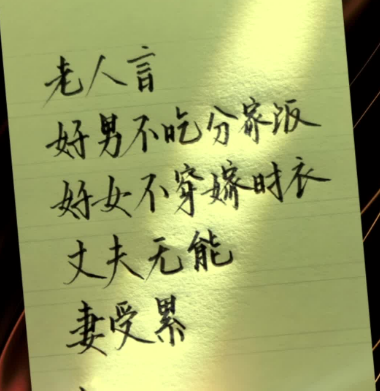 老人言
好男不吃分家饭
好女不穿嫁时衣
丈夫无能
妻受累